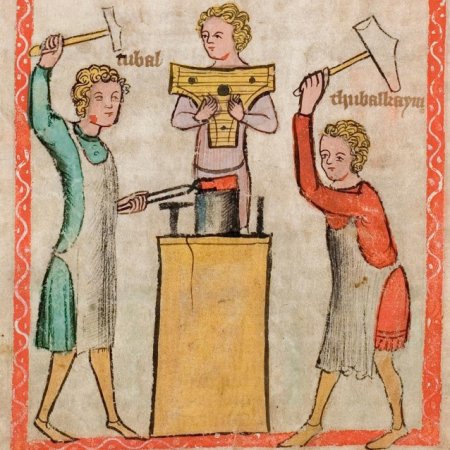 tubal
thubalkaym